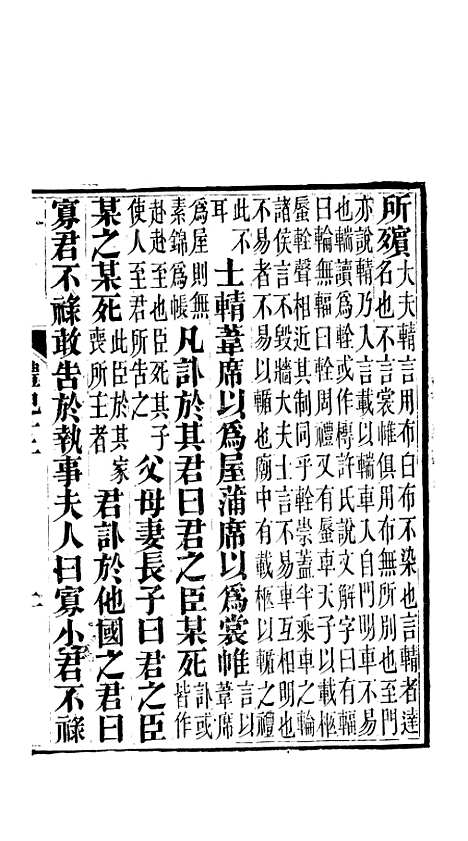 所殯大夫輤言用布白布不染也言輤者達
名也不言裳帷俱用布無所別也至門
亦說輤乃入言載以輲車入自門明車不易
也輲讀為輇或作槫許氏說文解字曰有輻
曰輪無輻曰輇周禮又有蜃車天子以載柩
蜃輇聲相近其制同乎輇崇蓋半乘車之輪
諸侯言不毀牆大夫士言不易車互相明也
不易者不易以輴也廟中有載柩以輴之禮
此不
耳
士輤葦席以為屋蒲席以為裳帷
言以
葦席
為屋則無
素錦為帳
凡訃於其君曰君之臣某死
訃或
皆作
赴赴至也臣死其子
使人至君所告之
父母妻長子曰君之臣
某之某死
此臣於其家
喪所主者
君訃於他國之君曰
寡君不祿敢告於執事夫人曰寡小君不祿
禮記十二